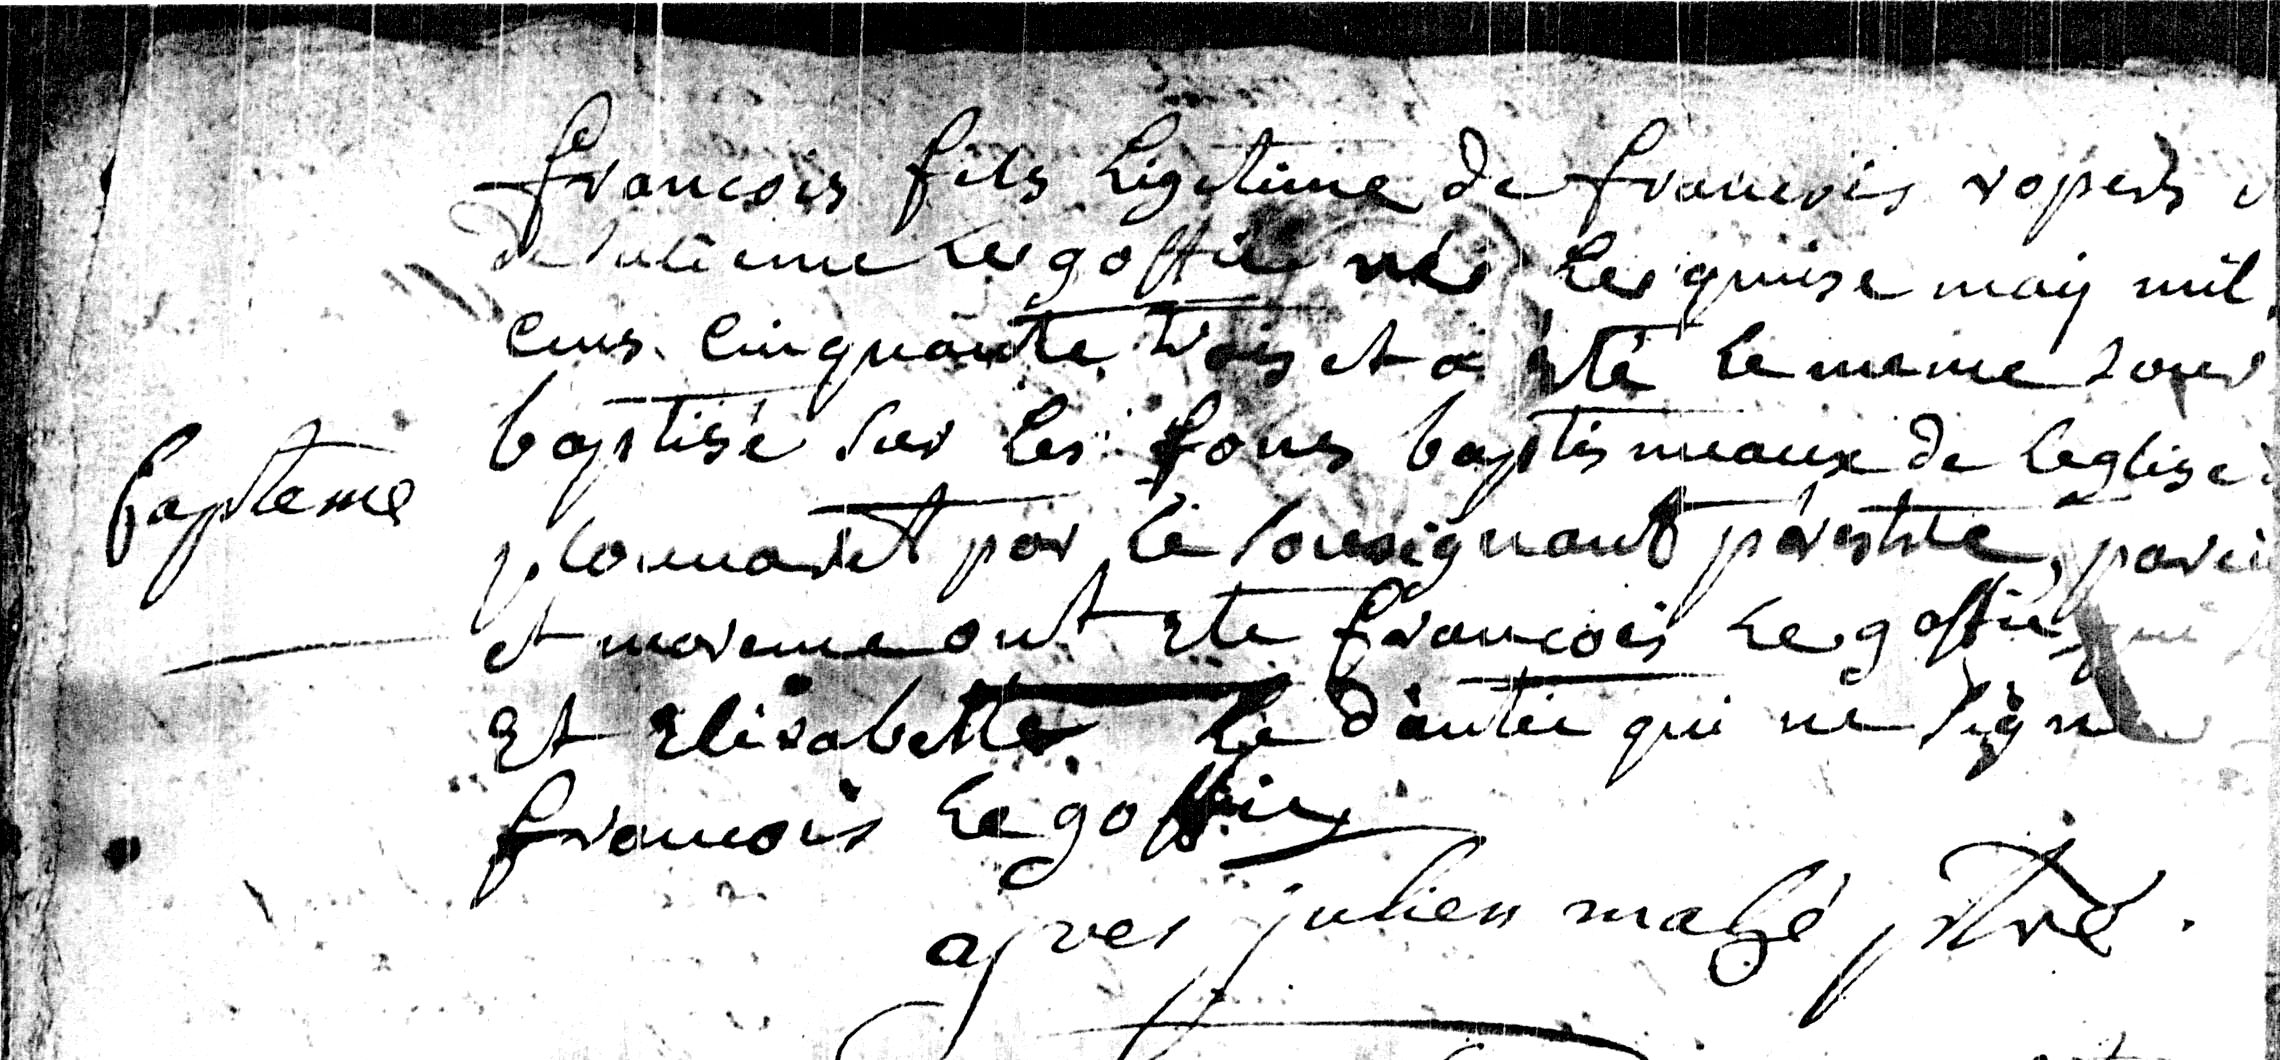 francois fils Legetime de francois ropers
de Julienne Le goffic né Le quinse may mil
Cens Cinquante trois et a été le meme Jour
baptême
baptisé sur les fons baptismaux de leglise
plounavet par le sousignant prestre, parein
et mareine ont ete francois Le goffic qui
Et Elisabette Le dantec qui ne signe
francois Le goffic
ayres julien mahé ptre.